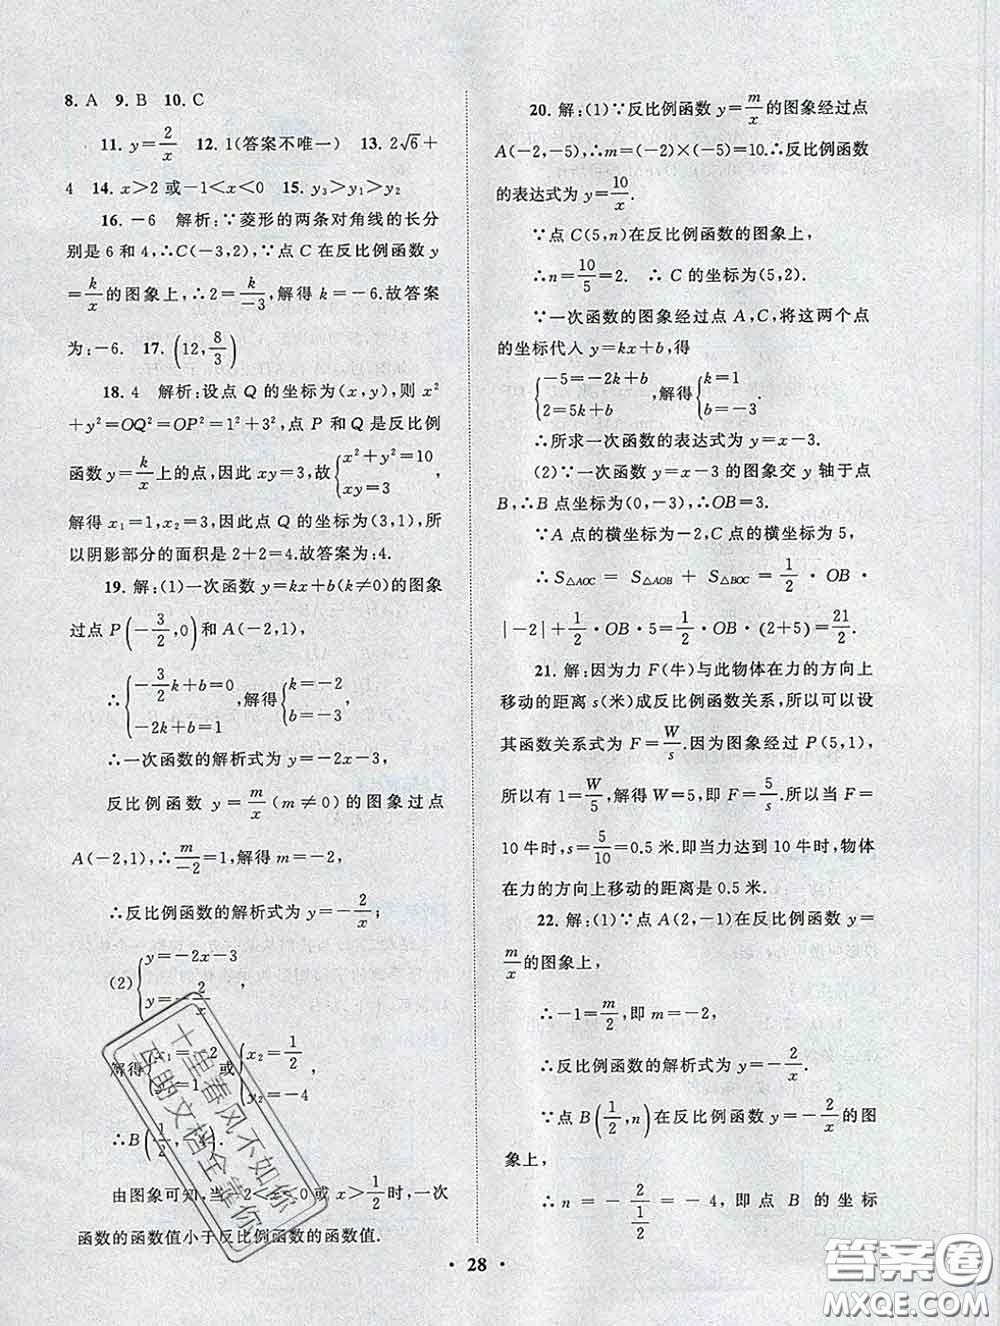 8. A　9. B　10. C
11. y=2/x　12. 1(答案不唯一)　13. 2√6+
4　14. x>2 或-1<x<0　15. y₃>y₁>y₂
16. -6　解析:∵菱形的两条对角线的长分
别是 6 和 4,∴C(-3,2),∵点 C 在反比例函数 y
=k/x的图象上,∴2=k/-3,解得 k=-6.故答案
为:-6.　17. (12,8/3)
18. 4　解析:设点 Q 的坐标为(x,y),则 x²
+y²=OQ²=OP²=1²+3²,点 P 和 Q 是反比例
函数 y=k/x上的点,因此 xy=3,故{x²+y²=10 xy=3,
解得 x₁=1,x₂=3,因此点 Q 的坐标为(3,1),所
以阴影部分的面积是 2+2=4.故答案为:4.
19. 解:(1)一次函数 y=kx+b(k≠0)的图象
过点 P(-3/2,0)和 A(-2,1),
∴{-3/2k+b=0 -2k+b=1,解得{k=-2 b=-3,
∴一次函数的解析式为 y=-2x-3,
反比例函数 y=m/x(m≠0)的图象过点
A(-2,1),∴m/-2=1,解得 m=-2,
∴反比例函数的解析式为 y=-2/x;
(2){y=-2x-3 y=-2/x,
解得{x₁=-2 =1 或{x₂=1/2 y₂=-4
∴B(1/2, ).
由图象可知,当 2<x<0 或 x>1/2时,一次
函数的函数值小于反比例函数的函数值.
20. 解:(1)∵反比例函数 y=m/x的图象经过点
A(-2,-5),∴m=(-2)×(-5)=10.∴反比例函数
的表达式为 y=10/x.
∵点 C(5,n)在反比例函数的图象上,
∴n=10/5=2.　∴ C 的坐标为(5,2).
∵一次函数的图象经过点 A,C,将这两个点
的坐标代人 y=kx+b,得
{-5=-2k+b 2=5k+b,解得{k=1 b=-3.
∴所求一次函数的表达式为 y=x-3.
(2)∵一次函数 y=x-3 的图象交 y 轴于点
B,∴B 点坐标为(0,-3),∴OB=3.
∵A 点的横坐标为-2,C 点的横坐标为 5,
∴ S△AOC = S△AOB + S△BOC = 1/2 · OB ·
|-2|+1/2·OB·5=1/2·OB·(2+5)=21/2.
21. 解:因为力 F(牛)与此物体在力的方向上
移动的距离 s(米)成反比例函数关系,所以可以设
其函数关系式为 F=W/s.因为图象经过 P(5,1),
所以有 1=W/5,解得 W=5,即 F=5/s.所以当 F=
10 牛时,s=5/10=0.5 米.即当力达到 10 牛时,物体
在力的方向上移动的距离是 0.5 米.
22. 解:(1)∵点 A(2,-1)在反比例函数 y=
m/x的图象上,
∴-1=m/2,即 m=-2,
∴反比例函数的解析式为 y=-2/x.
∵点 B(1/2,n)在反比例函数 y=-2/x的图
象上,
∴n = -2/(1/2) = -4,即点 B 的坐标
· 28 ·
十里春风不如你
文档全靠你
答案圈
MXQE.COM